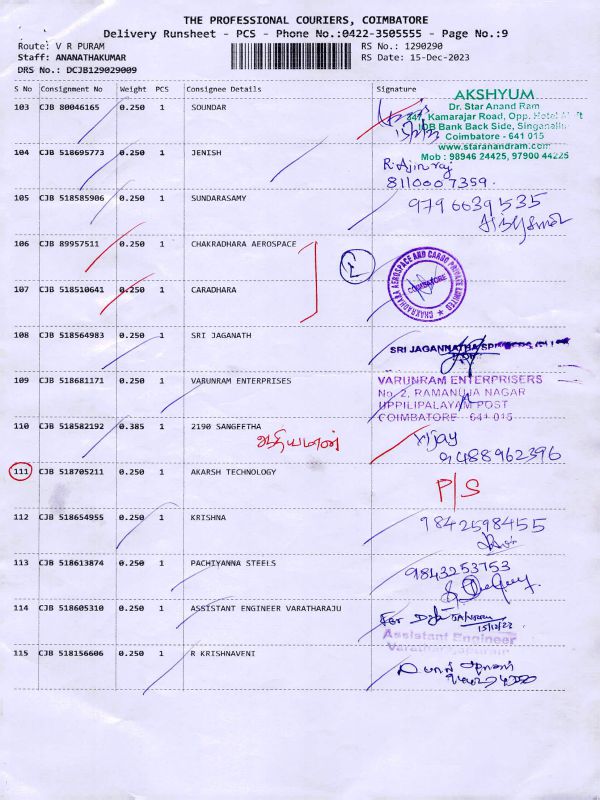 THE PROFESSIONAL COURIERS, COIMBATORE
Delivery Runsheet - PCS - Phone No.:0422-3505555 - Page No.:9
Route: V R PURAM
RS No.: 1290290
Staff: ANANATHAKUMAR
RS Date: 15-Dec-2023
DRS No.: DCJB129029009
S No Consignment No Weight PCS Consignee Details Signature
103 CJB 80046165 0.250 1 SOUNDAR
AKSHYUM
Dr. Star Anand Ram
Kamarajar Road, Opp. Hotel
IOB Bank Back Side, Singanallu
Coimbatore - 641 015
www.staranandram.com
Mob : 98946 24425, 97900 44225
104 CJB 518695773 0.250 1 JENISH
R. Ajin raj
8110007359.
105 CJB 518585906 0.250 1 SUNDARASAMY
9796639535
106 CJB 89957511 0.250 1 CHAKRADHARA AEROSPACE
CHAKRADHARA AEROSPACE AND CARGO PRIVATE LIMITED
COIMBATORE
107 CJB 518510641 0.250 1 CARADHARA
108 CJB 518564983 0.250 1 SRI JAGANATH
SRI JAGANNATHA
109 CJB 518681171 0.250 1 VARUNRAM ENTERPRISES
VARUNRAM ENTERPRISERS
No. 2, RAMANUJA NAGAR
UPPILIPALAYAM POST
COIMBATORE - 641 015
110 CJB 518582192 0.385 1 2190 SANGEETHA
Vijay
9488962396
111 CJB 518705211 0.250 1 AKARSH TECHNOLOGY
P/S
112 CJB 518654955 0.250 1 KRISHNA
9842598455
113 CJB 518613874 0.250 1 PACHIYANNA STEELS
9843253753
114 CJB 518605310 0.250 1 ASSISTANT ENGINEER VARATHARAJU
For
15/12/23
Assistant Engineer
115 CJB 518156606 0.250 1 R KRISHNAVENI